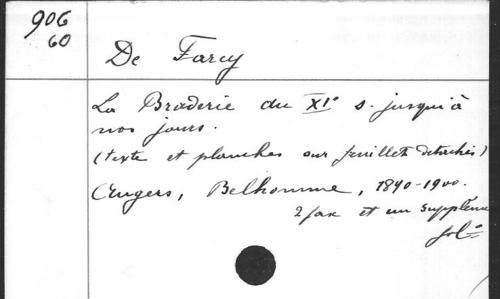 906
60
De Farcy
La Broderie du XIe s. jusqu'à
nos jours.
(texte et planches sur feuillets détachés)
Angers, Belhomme, 1890-1900.
2 fax et un supplém
fol=